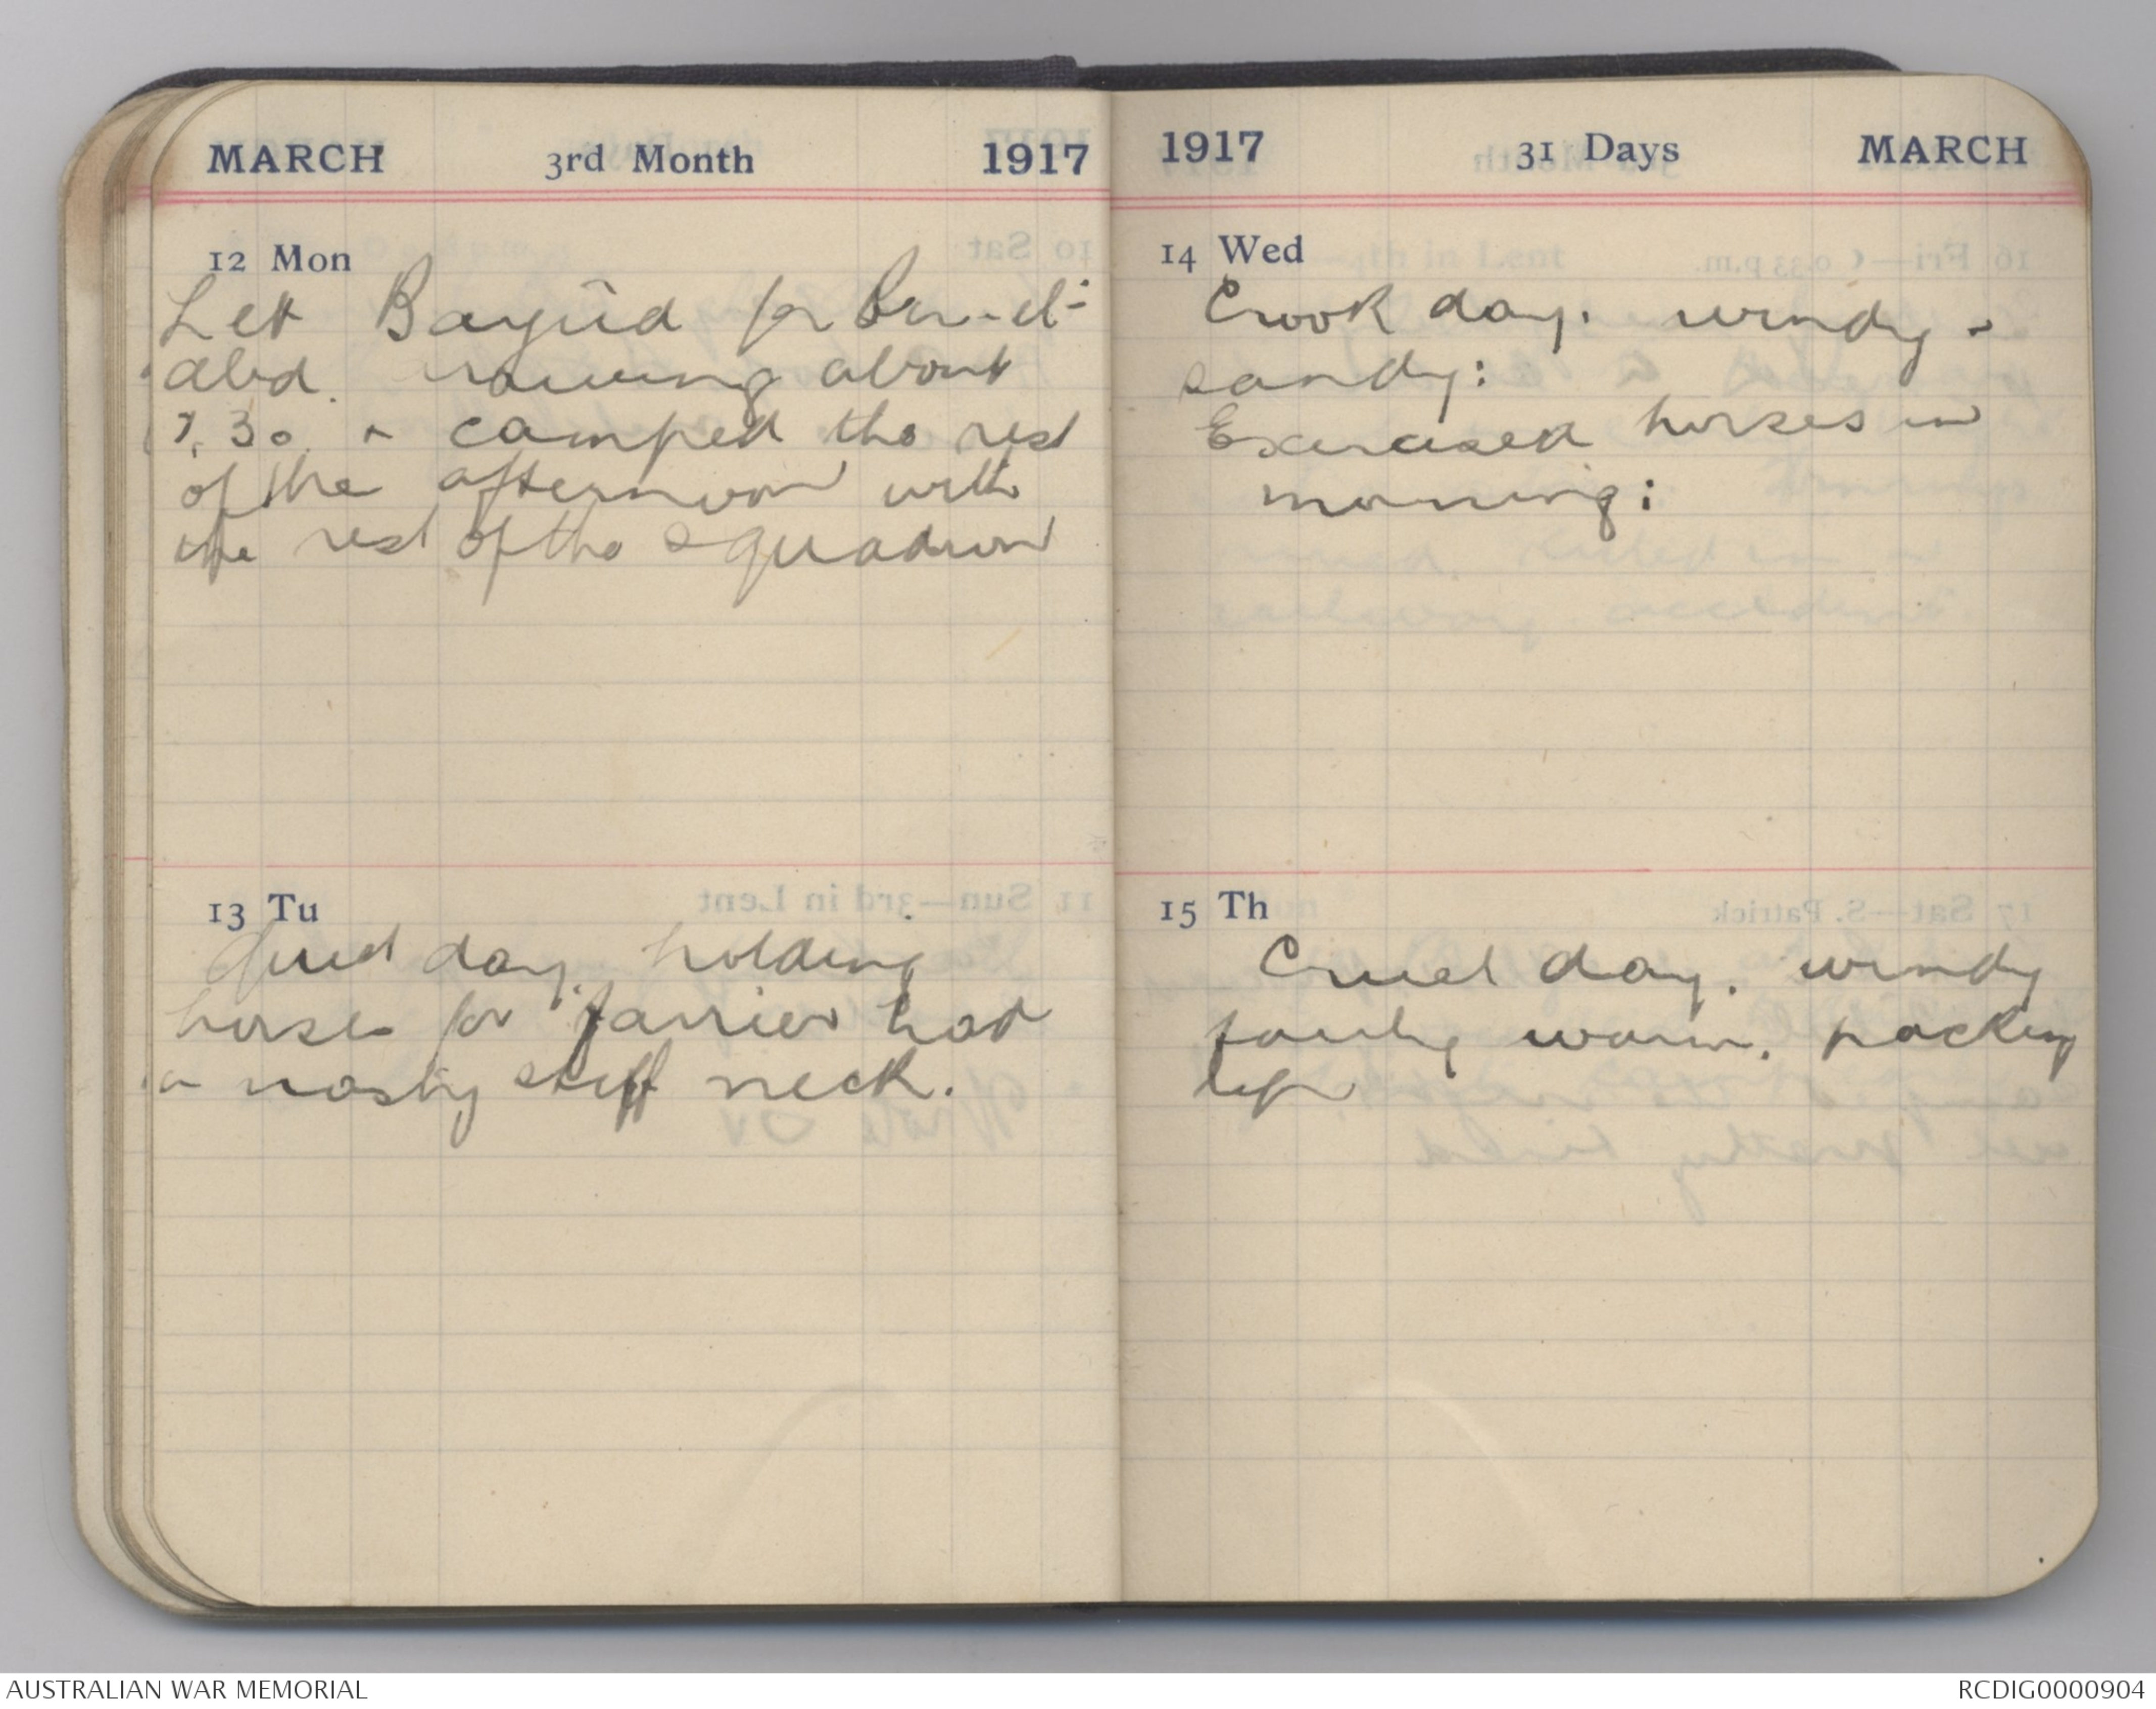 MARCH 3rd Month 1917
12 Mon
Left Bayûd for Bir-el-
abd. arriving about
7.30. & camped the rest
of the afternoon with
the rest of the squadron
13 Tu
Quiet day. holding
horses for farrier had
a nasty stiff neck.
1917 31 Days MARCH
14 Wed
Crook day. windy &
sandy:
Exercised horses in
morning:
15 Th
Cruel day. windy
fairly warm. packing
up
AUSTRALIAN WAR MEMORIAL
RCDIG0000904